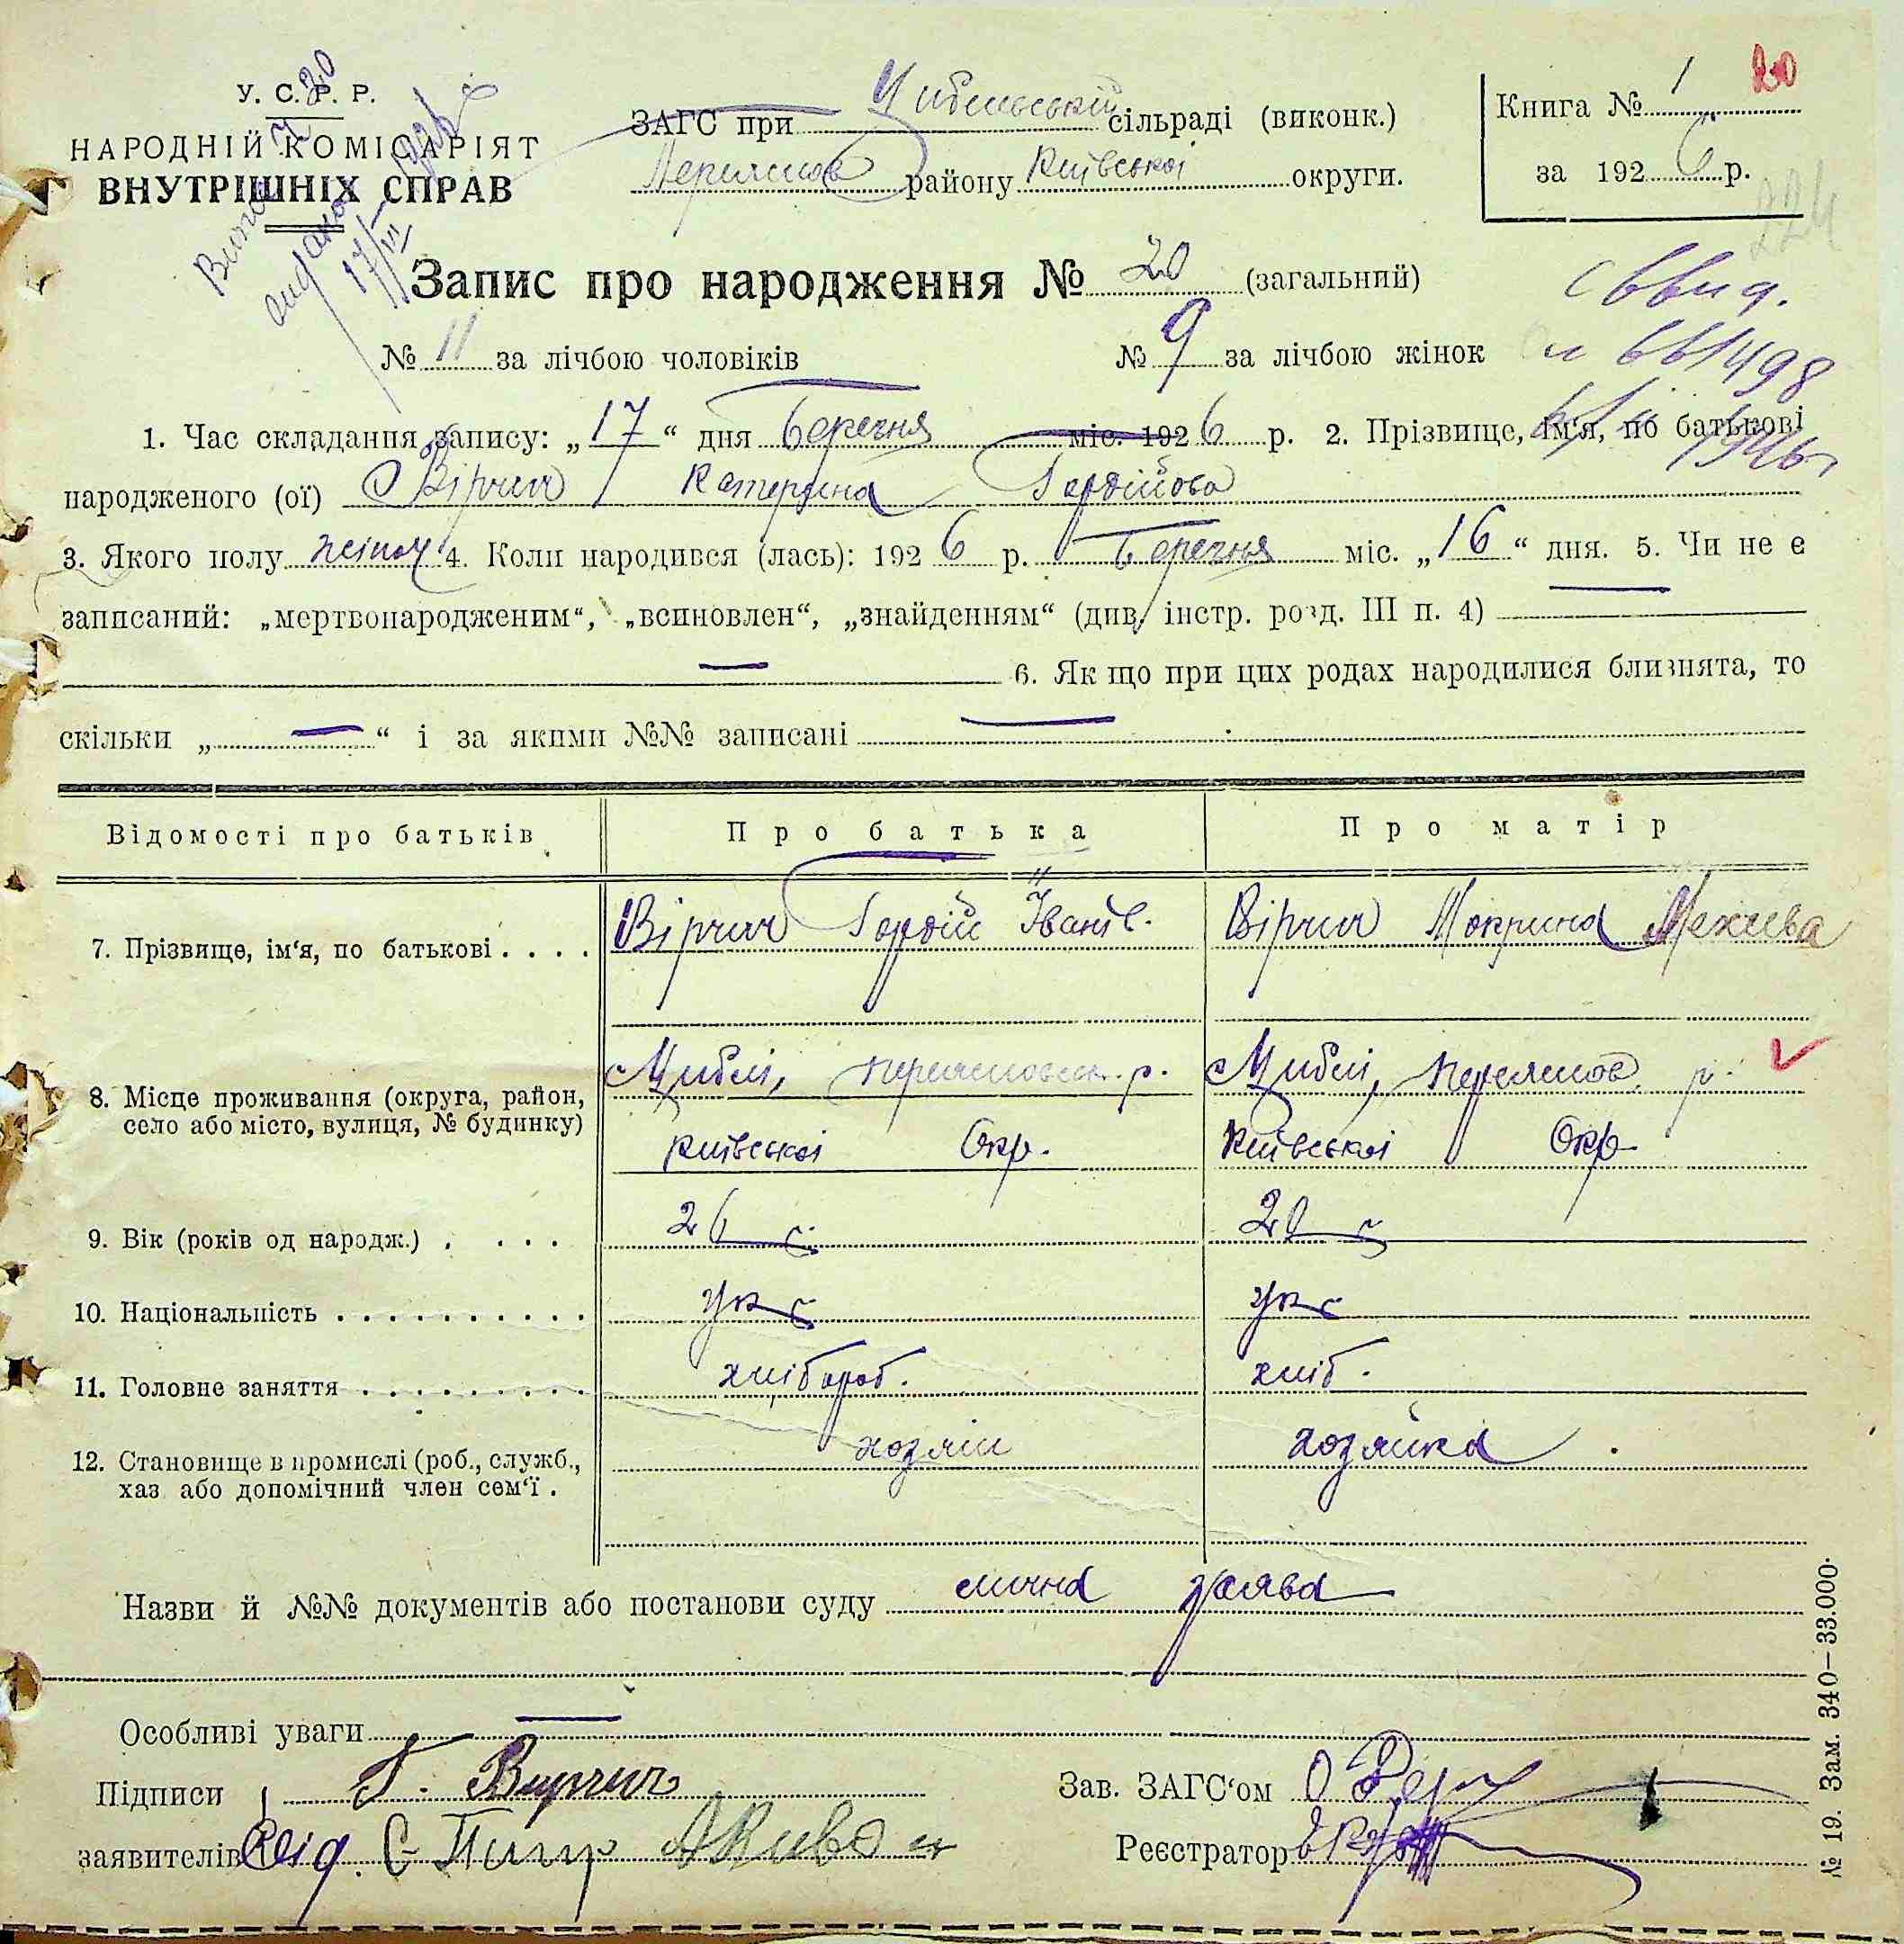 У. С. Р. Р.
НАРОДНІЙ КОМІСАРІЯТ
ВНУТРІШНІХ СПРАВ
ЗАГС при Цибельській сільраді (виконк.)
Переяслов району Київської округи.
Книга № 1 20
за 1926 р.
224
17/III 1926
Запис про народження № 20 (загальний)
№ 11 за лічбою чоловіків № 9 за лічбою жінок
1. Час складання запису: „17“ дня березня міс. 1926 р. 2. Прізвище, ім'я, по батькові
народженого (ої) Вірич Катерина Гордійова
3. Якого полу жіноч 4. Коли народився (лась): 1926 р. березня міс. „16“ дня. 5. Чи не є
записаний: „мертвонародженим“, „всиновлен“, „знайденням“ (див. інстр. розд. III п. 4) —
— 6. Як що при цих родах народилися близнята, то
скільки „ — “ і за якими №№ записані —
Відомості про батьків Про батька Про матір
7. Прізвище, ім'я, по батькові . . . . Вірич Гордій Іванів. Вірич Мокрина
8. Місце проживання (округа, район, Циблі, переясловськ. р. Циблі, переяслов. р.
село або місто, вулиця, № будинку) київської Окр. Київської Окр.
9. Вік (років од народж.) . . . . 26 20
10. Національність . . . . . . . . . . укр укр
11. Головне заняття . . . . . . . . . . хлібороб. хліб.
12. Становище в промислі (роб., служб., хозяін хозяйка
хаз або допомічний член сем'ї .
Назви й №№ документів або постанови суду лична заява
Особливі уваги —
Підписи Г. Вирчич Зав. ЗАГС'ом
заявителів Реєстратор
№ 19. Зам. 340—33.000.